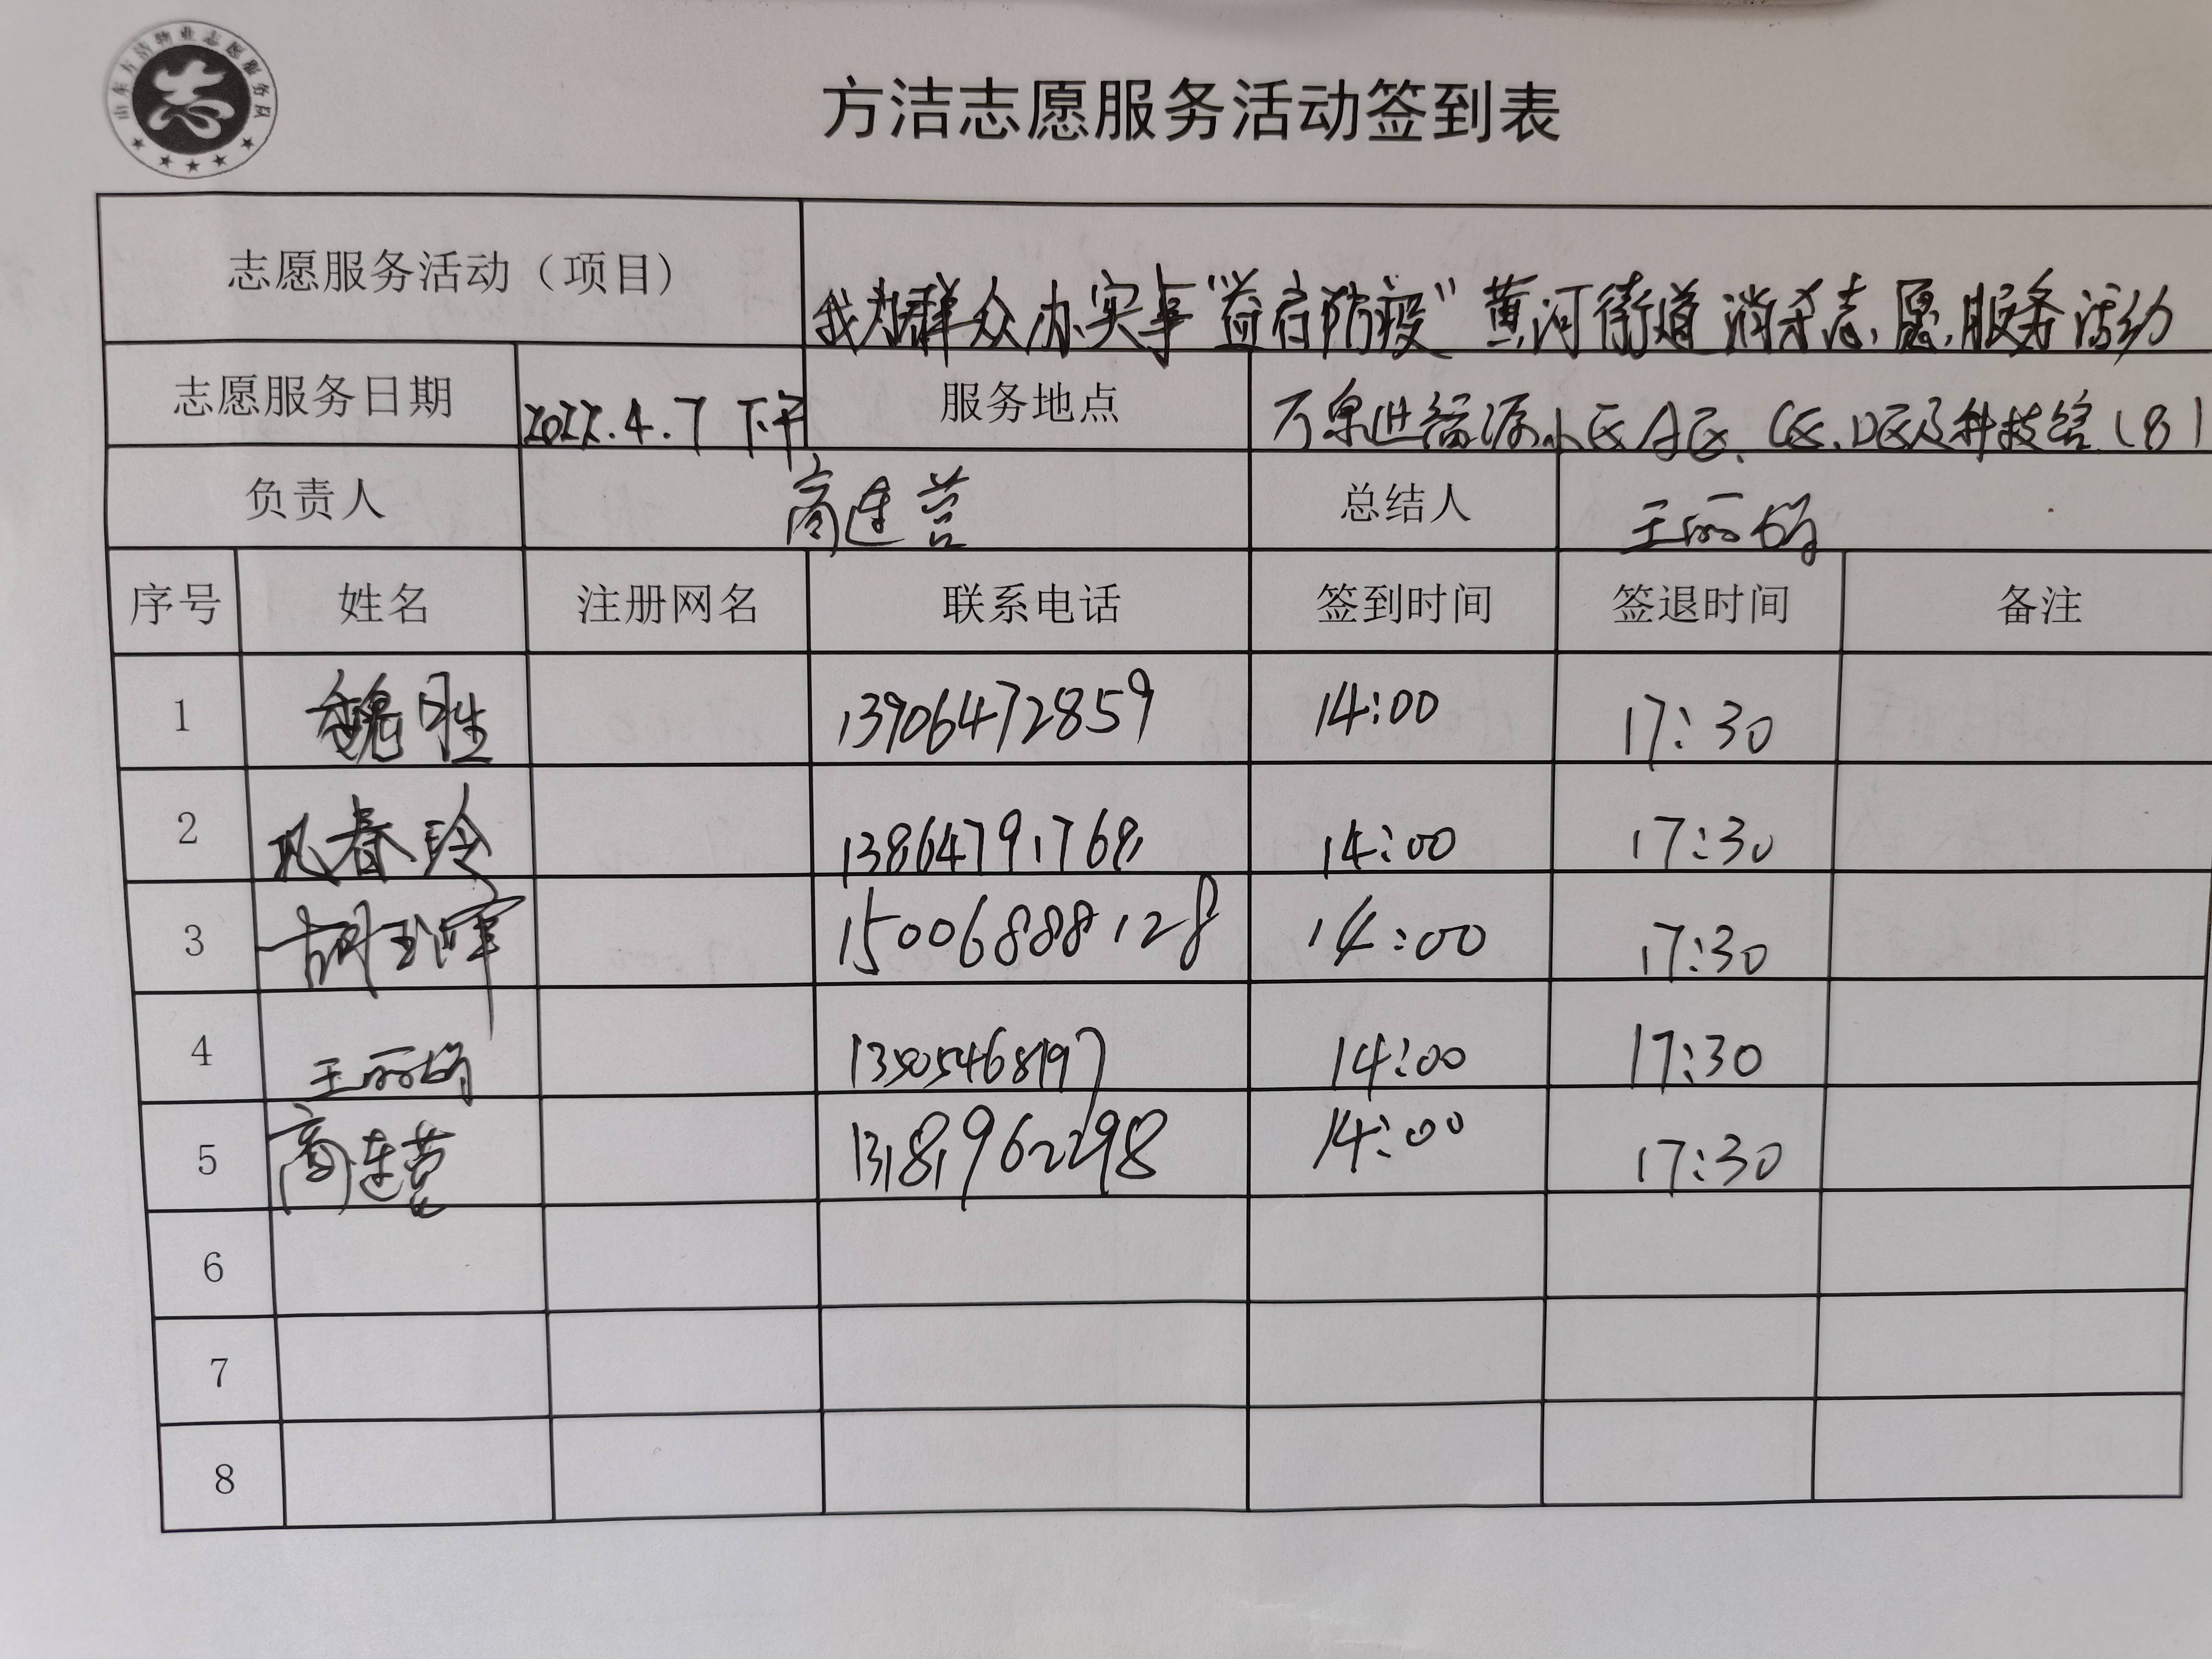 山东方洁物业志愿服务队
志
方洁志愿服务活动签到表
志愿服务活动（项目） 我为群众办实事“益启防疫”黄河街道消杀志愿服务活动
志愿服务日期 2022.4.7 下午 服务地点 小区A区、C区、D区及科技馆（8）
负责人 商连营 总结人 王丽娟
序号 姓名 注册网名 联系电话 签到时间 签退时间 备注
1 魏胜 13906472859 14:00 17:30
2 巩春玲 13864791768 14:00 17:30
3 胡玉晖 15006888128 14:00 17:30
4 王丽娟 13505468197 14:00 17:30
5 商连营 13181962298 14:00 17:30
6
7
8